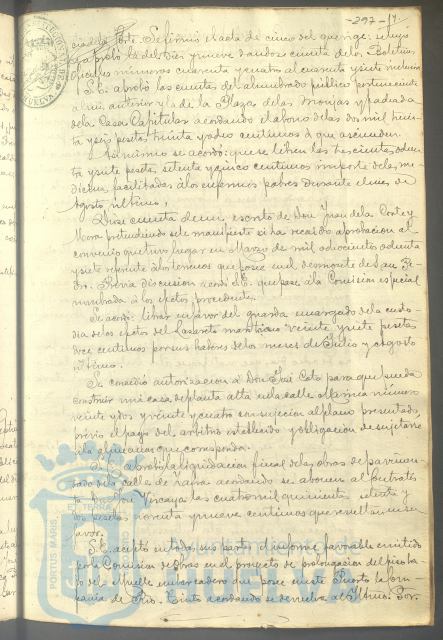 -297-
cia de la Corte. Se firmó el acta de cinco del que rige: se leyó
y aprobó la del diez y nueve dandose cuenta de los Boletines
oficiales números cuarenta y cuatro al cuarenta y siete inclusive
Se aprobó las cuentas del alumbrado público perteneciente
al mes anterior y la de la Plaza de las Monjas y fachada
de la Casa Capitular acordando el abono de las dos mil
y seis pesetas treinta y ocho centimos á que ascienden.
Asimismo se acordó: que se libren las trescientas ochenta
y siete pesetas, setenta y cinco centimos importe de las me-
dicinas facilitadas á los enfermos pobres durante el mes de
Agosto último.
Diose cuenta de un escrito de Don Juan de la Corte y
Mora pretendiendo se le manifieste si ha recaido aprobacion al
convenio que tuvo lugar en Marzo de mil ochocientos ochenta
y siete referente á los terrenos que posee en el desmonte de San Pe-
dro. Previa discusion acordó el E. que pase á la Comision especial
nombrada á los efectos procedentes.
Se acordó: librar en favor del guarda encargado de la custo-
dia de los efectos del Lazareto maritimo veinte y siete pesetas
doce centimos por sus haberes de los meses de Julio y Agosto
último.
Se concedió autorizacion á Don José Coto para que pueda
construir una casa de planta alta en la calle números
veinte y dos y veinte y cuatro con sujecion al plano presentado,
previo el pago del arbitrio establecido y obligacion de sujetarse
á la alineacion que corresponda.
Se aprobó la liquidacion final de las obras de pavimen-
tado de la calle de acordando se abonen al contratis-
ta Vizcaya las cuatro mil quinientas setenta y
dos pesetas noventa y nueve centimos que resultan en su
favor.
Se aceptó en todas sus partes el informe favorable emitido
por la Comision de Obras en el proyecto de prolongacion del
del Muelle embarcadero que posee en este Puerto la Com-
pañia de Rio-Tinto acordando se devuelva al Iltmo. Sor.
PORTUS MARIS ET TERRÆ
Ayuntamiento de
Huelva
HUELVA